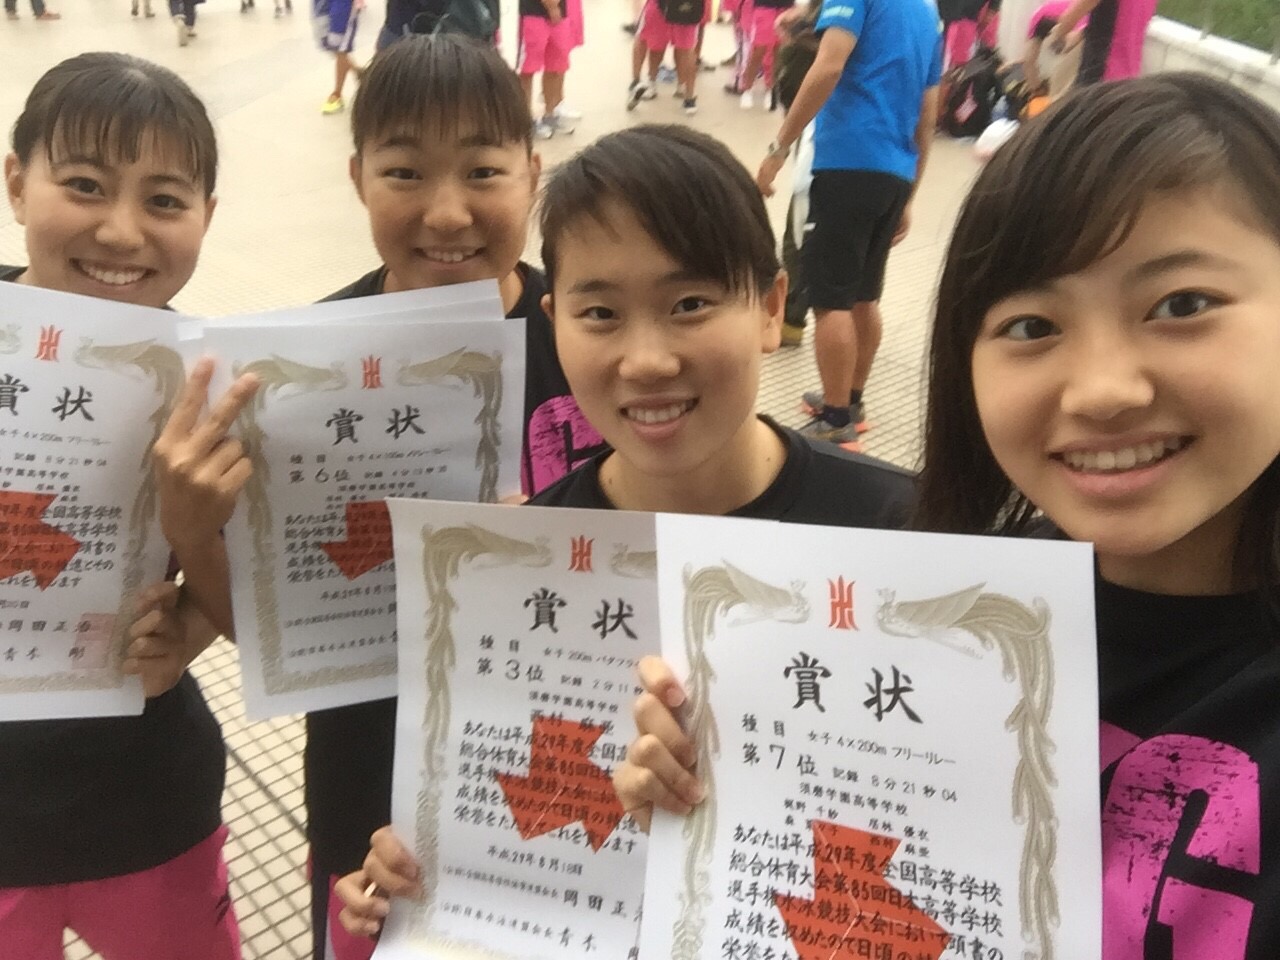 賞状
女子 4×200m フリーリレー
記録 8分21秒04
学園高等学校
岡田正治
青木 剛
賞状
種目 女子 4×100m メドレーリレー
第6位 記録 4分
須磨学園高等学校
あなたは平成29年度全国高等学校
総合体育大会第85回日本高等学校
平成29年8月
青
賞状
種目 女子 200m バタフライ
第3位 記録 2分11秒
須磨学園高等学校
西村 麻亜
あなたは平成29年度全国高
総合体育大会第85回日本
選手権水泳競技大会におい
成績を収めたので日頃の精進
栄誉をたたえてこれを賞します
平成29年8月18日
岡田正治
(公財)日本水泳連盟会長 青木 剛
賞状
種目 女子 4×200m フリーリレー
第7位 記録 8分21秒04
須磨学園高等学校
梶野 千紗 居林 優衣
西村 麻亜
あなたは平成29年度全国高等学校
総合体育大会第85回日本高等学校
選手権水泳競技大会において頭書の
成績を収めたので日頃の精進とその
栄誉をたたえてこれを賞します